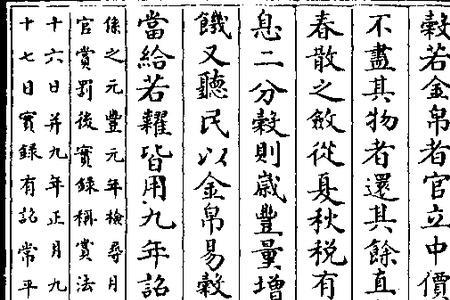 穀若金帛者官立中價
不盡其物者還其餘直
春散之斂從夏秋税有
息二分穀則歲豐量增
饑又聽民以金帛易穀
當給若糶皆用九年詔
係之元豐元年檢尋月
官賞罰後實録稱賞法
十六日并九年正月九
十七日實録有詔常平